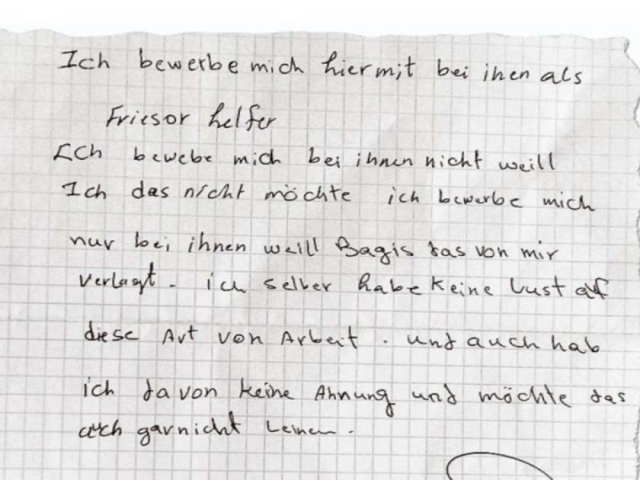 Ich bewerbe mich hiermit bei ihen als
Friesor helfer
Ich bewebe mich bei ihnen nicht weill
Ich das nicht möchte ich bewerbe mich
nur bei ihnen weill Bagis das von mir
verlagt. ich selber habe keine Lust auf
diese Art von Arbeit. und auch hab
ich davon keine Ahnung und möchte das
auch garnicht Leinen.